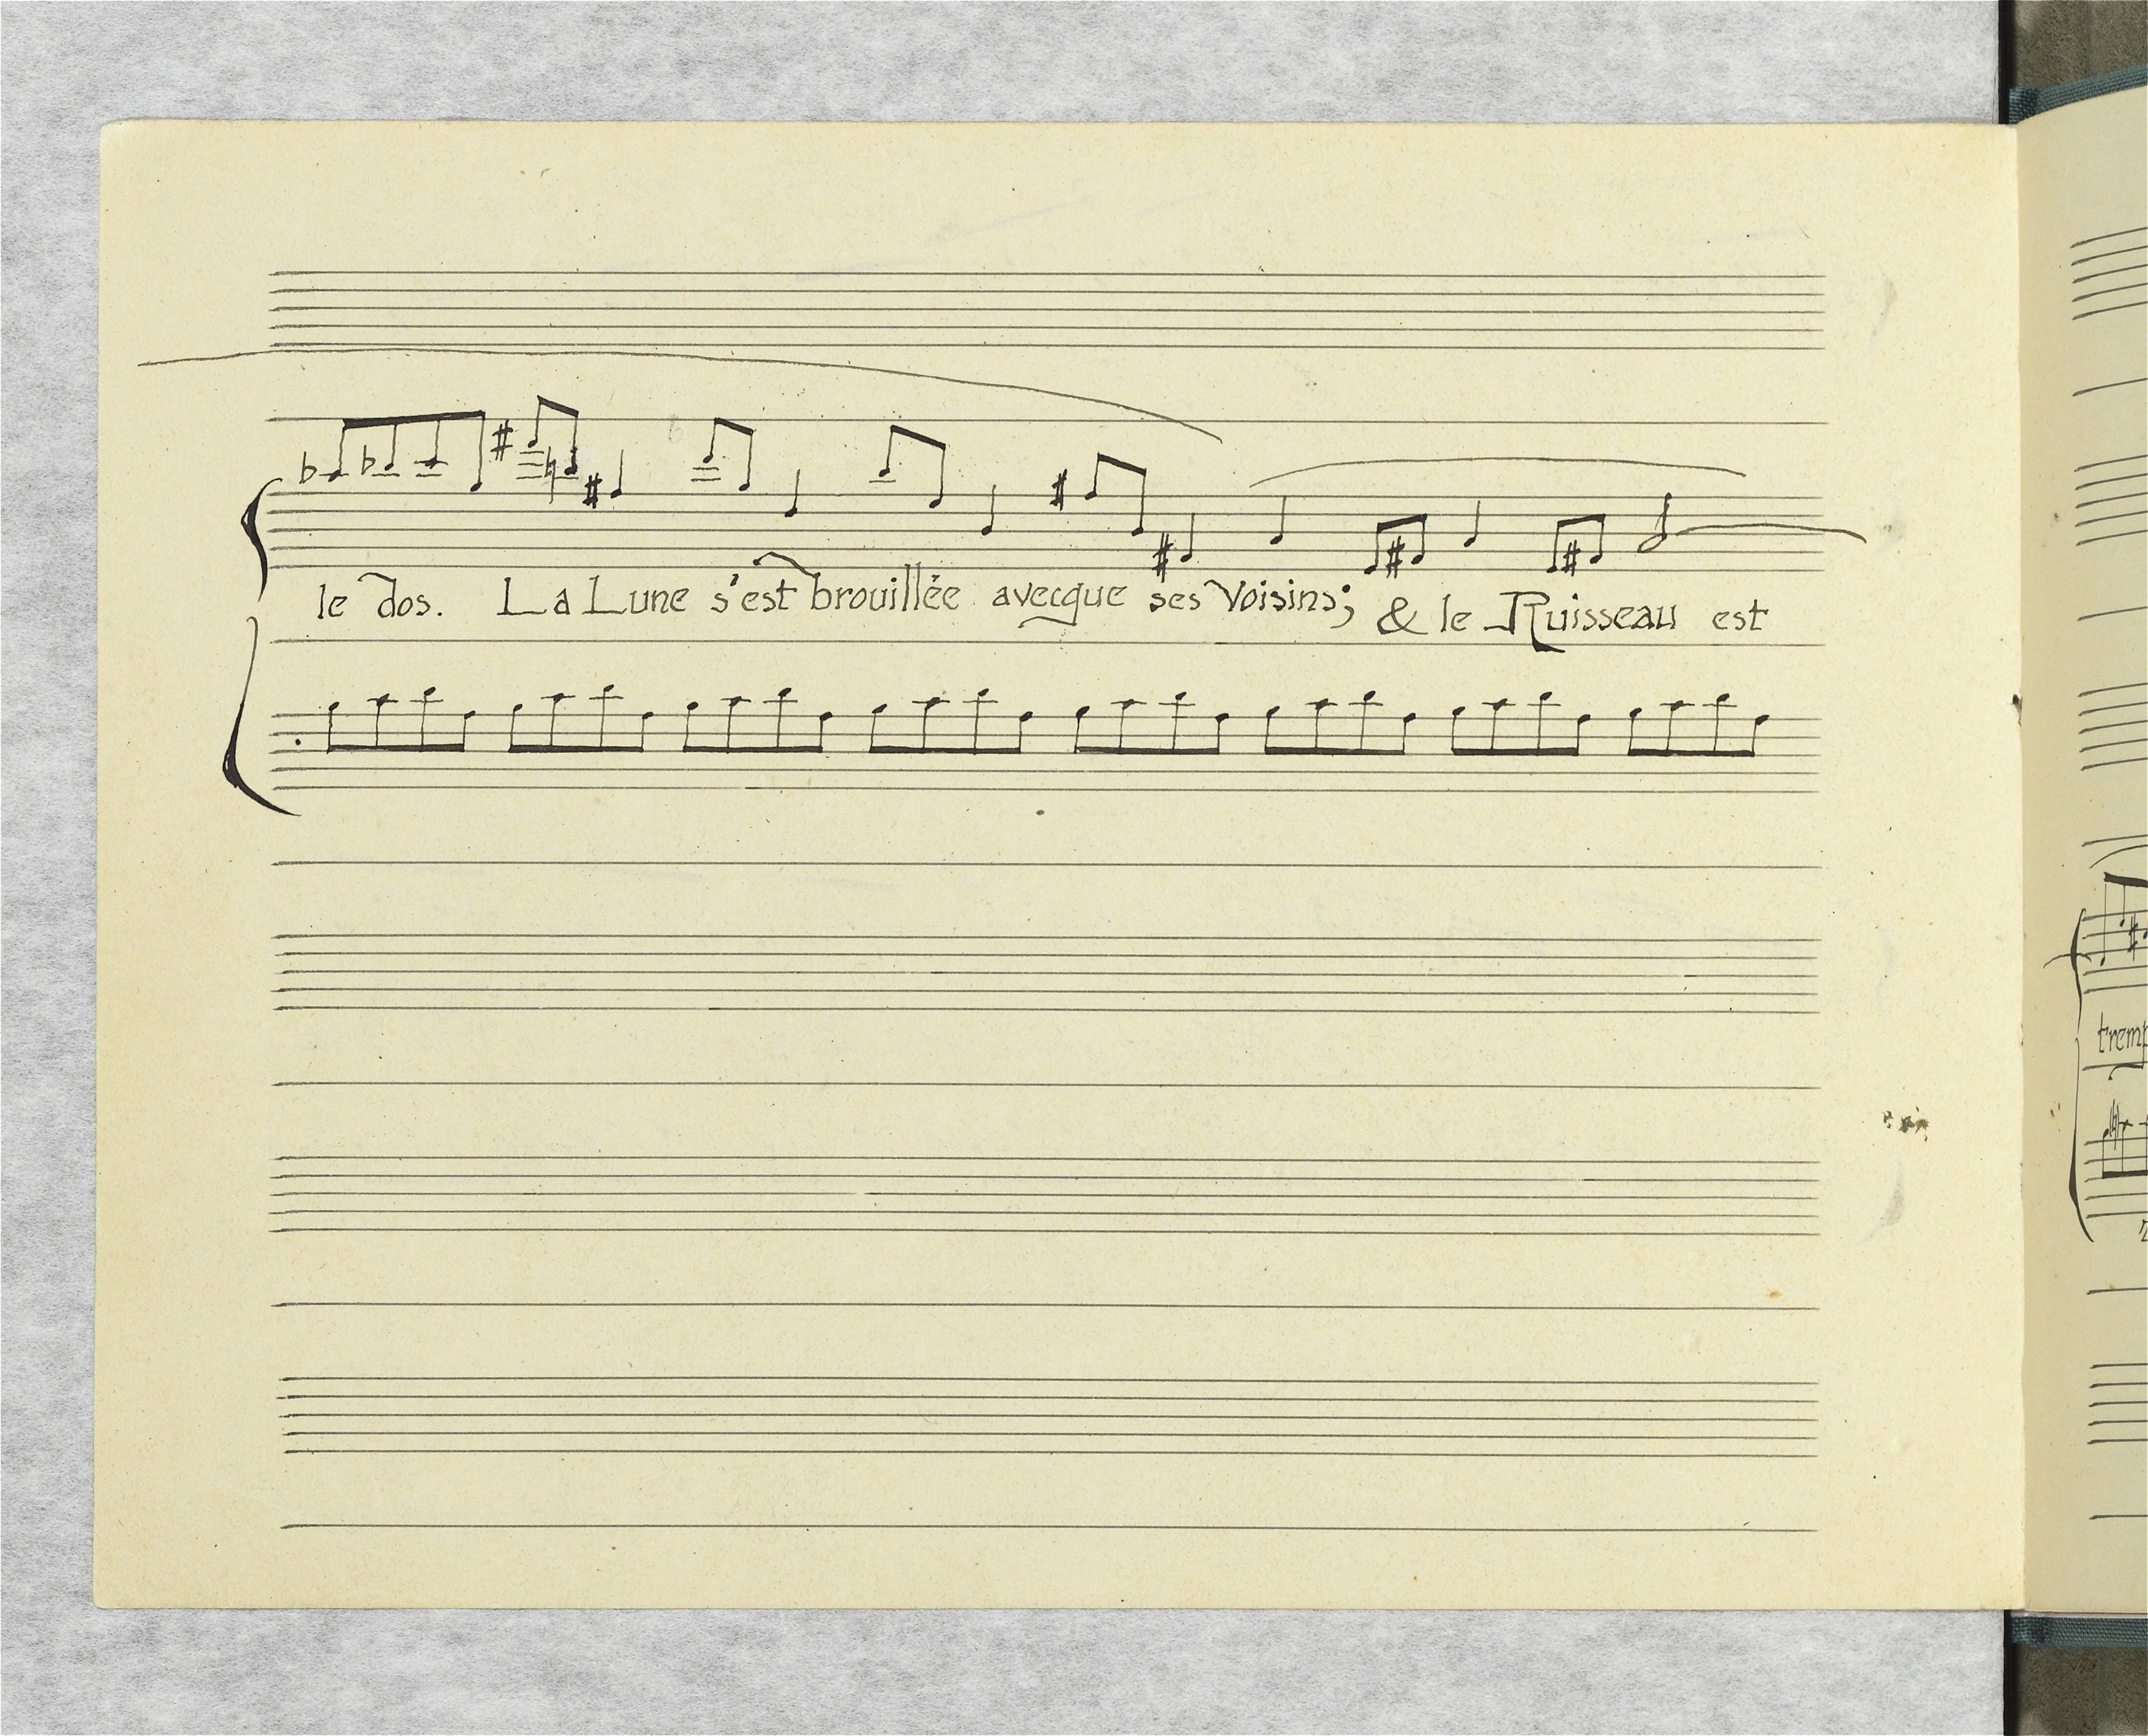 le dos. La Lune s'est brouillée avecque ses Voisins; & le Ruisseau est
tremp